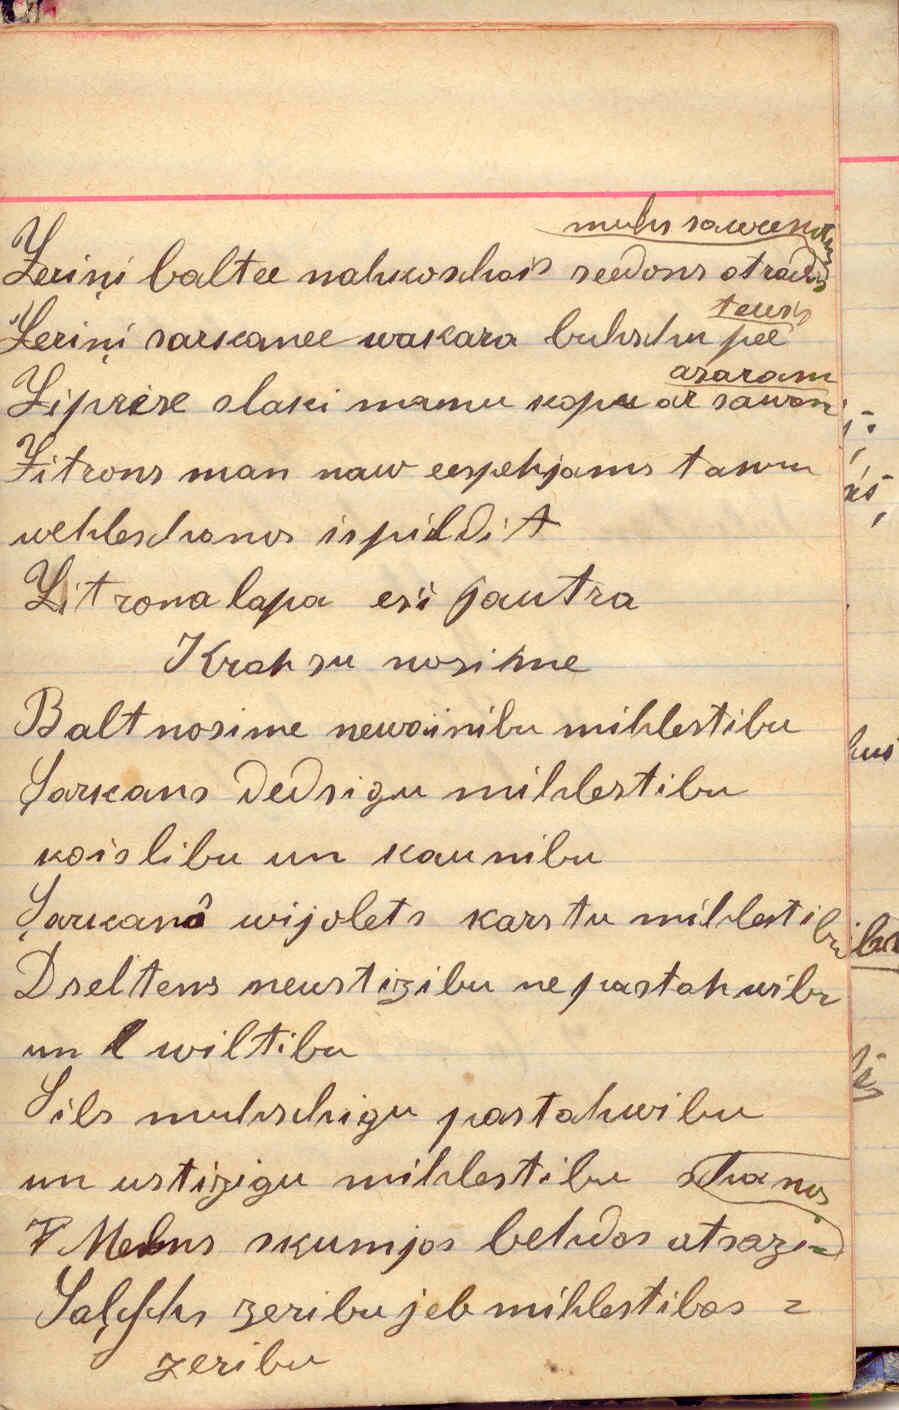 muhs saweenotus
Zeriņi baltee nahkoschais seedons atradis
Zeriņi sarkanee wakara buhschu pee tewis
Ziprese slaki mamu kapu ar sawam asaram
Zitrons man naw eespehjams tawu
wehleschanos ispildit
Zitrona lapa esi jautra
Krahsu nosihme
Balt nosime newainibu mihlestibu
Sarkans dedsigu mihlestibu
kaislibu un kaunibu
Sarkanâ wijolets karstu mihlestibu
Dseltens neustizibu nepastahwibu
un wiltibu
Sils muhschigu pastahwibu
un ustizigu mihlestibu
Melns skumjas behdas atsazi=
schanos
Saļsch zeribu jeb mihlestibas =
zeribu